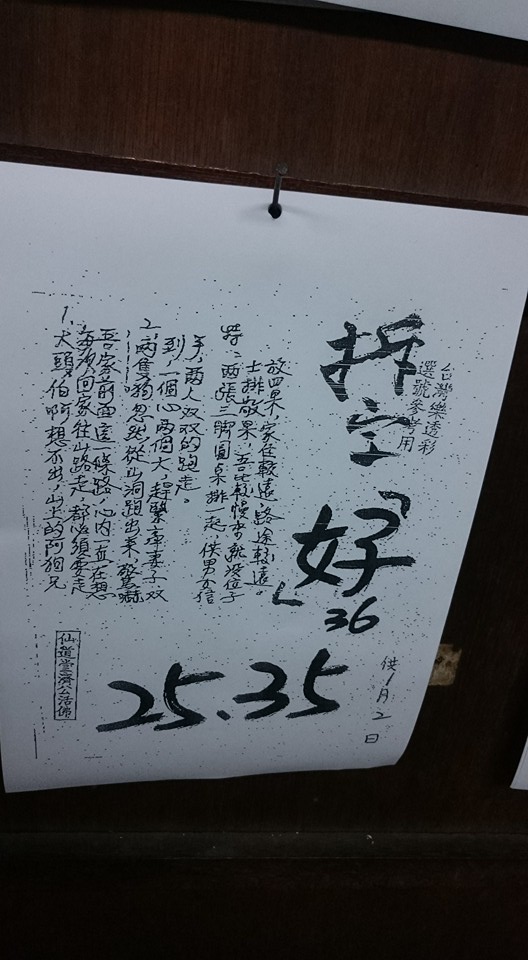 台灣樂透彩
選號參考用
拆字「好」
36
25.35
供1月2日
1、大頭伯啊想不出,山上的阿狗兄
每次回家往山路走,都必須要走
吾家前面這條路,心內並在想
2、兩隻狗忽然從山洞跑出來,驚嚇
到一個心兩個大,趕緊牽妻子双
手,兩人双双的跑走。
特、兩張三脚圓桌排一起 供男女信
士排散果,吾比較慢來就沒位子
放四果,家住較遠路途較遠。
仙道堂濟公活佛